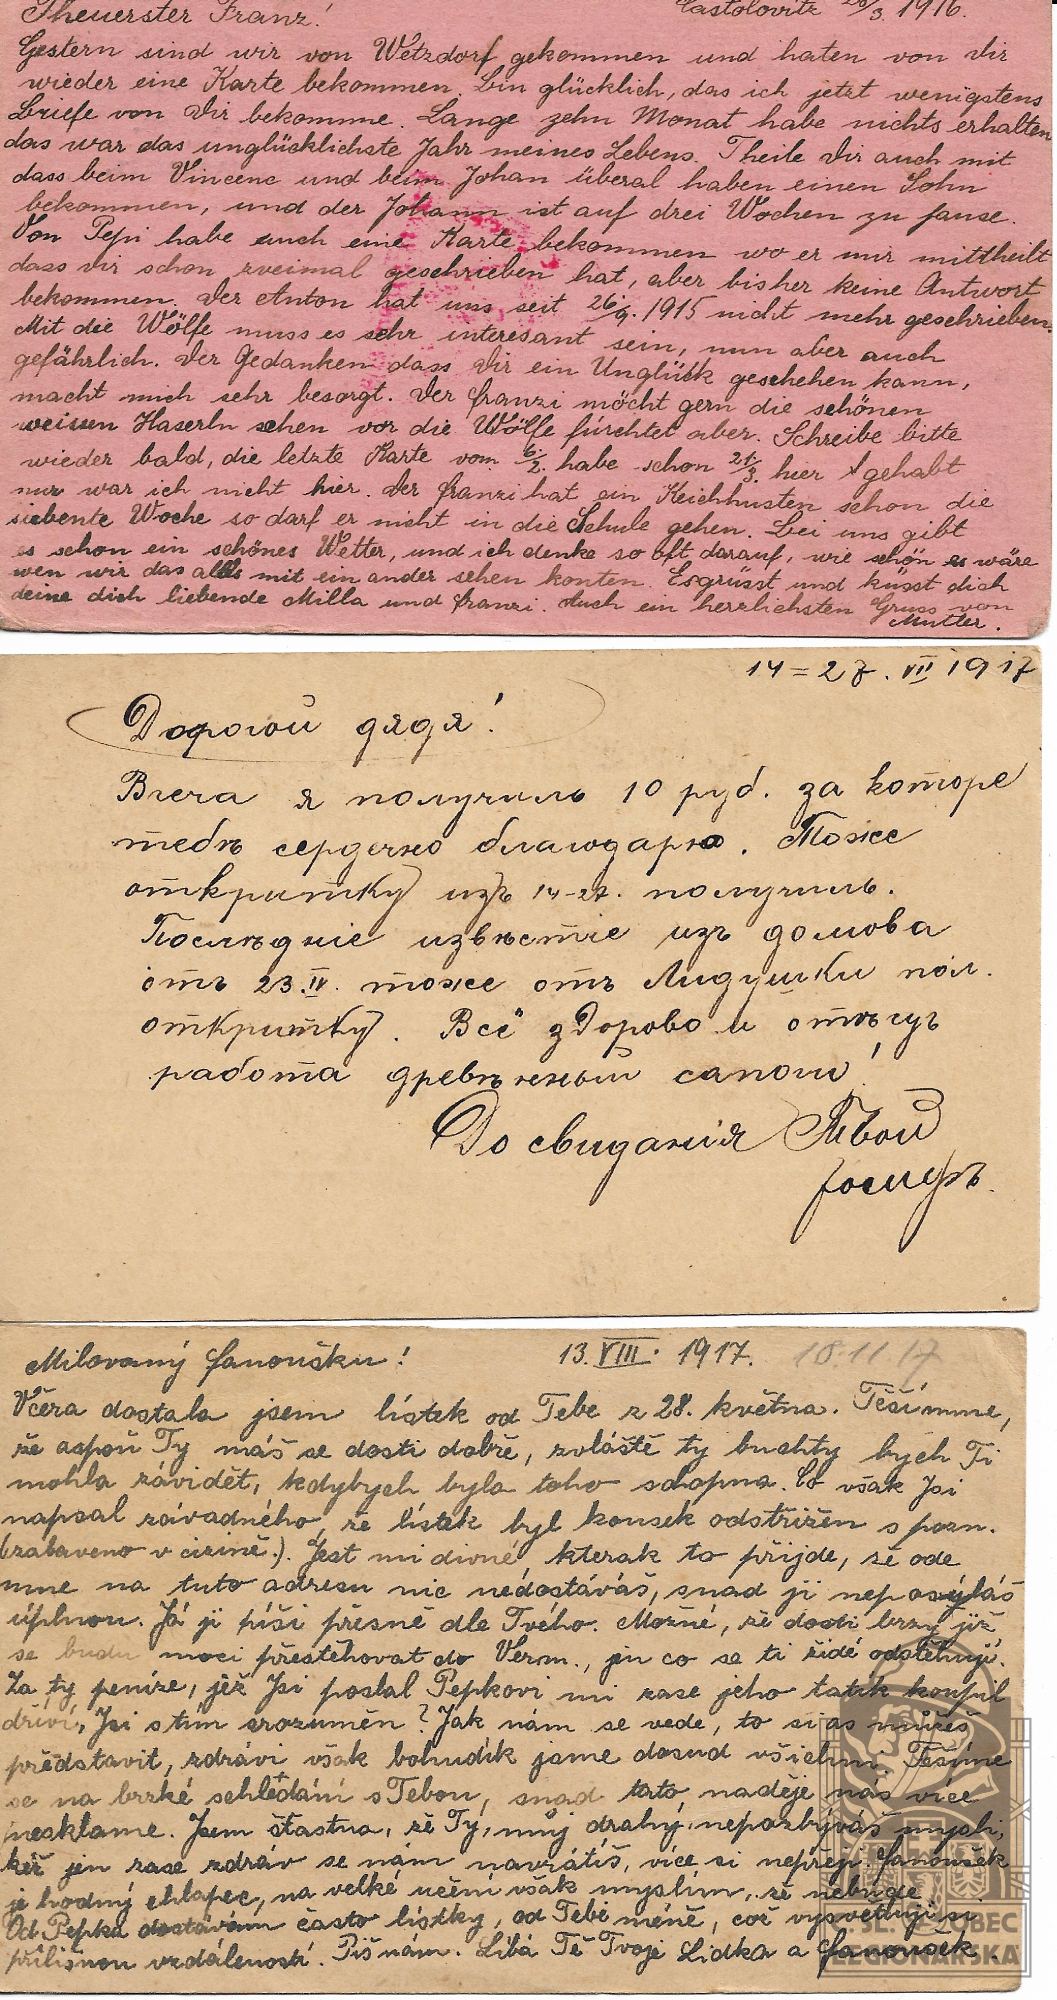 Theuerster Franz! Častolovitz 26/3. 1916.
Gestern sind wir von Wetzdorf gekommen und haten von dir
wieder eine Karte bekommen. Bin glücklich, das ich jetzt wenigstens
Briefe von dir bekomme. Lange zehn Monat habe nichts erhalten
das war das unglücklichste Jahr meines Lebens. Theile dir auch mit
dass beim Vincenc und beim Johan überal haben einen Sohn
bekommen, und der Johann ist auf drei Wochen zu hause.
Von Pepi habe auch eine Karte bekommen wo er mir mittheilt
dass dir schon zweimal geschrieben hat, aber bisher keine Antwort
bekommen. Der Anton hat uns seit 26/9. 1915 nicht mehr geschrieben.
Mit die Wölfe muss es sehr interesant sein, nun aber auch
gefährlich. Der Gedanken dass dir ein Unglück geschehen kann,
macht mich sehr besorgt. Der Franzi möcht gern die schönen
weissen Haserln sehen vor die Wölfe fürchtet aber. Schreibe bitte
wieder bald, die letzte Karte vom 6/2. habe schon 21/3. hier gehabt
nur war ich nicht hier. Der Franzi hat ein Keichhusten schon die
siebente Woche so darf er nicht in die Schule gehen. Bei uns gibt
es schon ein schönes Wetter, und ich denke so oft darauf, wie schön es wäre
wen wir das alles mit ein ander sehen konten. Es grüsst und küsst dich
deine dich liebende Milla und Franzi. Auch ein herzlichsten Gruss von
Mutter.
14=27. VII 1917
Дорогой дядя!
Вчера я получилъ 10 руб. за которе
тебѣ сердечно благодарю. Тоже
открытку изъ 14-27. получилъ.
Послѣдніе извѣстіе изъ домова
отъ 23.IV. тоже отъ Лидушки пол.
открытку. Всё здорово и
работа сапоги!
До свиданія Твой
Іосифъ.
Milovaný Fanoušku! 13. VIII. 1917. 18.11.17
Včera dostala jsem lístek od Tebe z 28. května. Těšímme,
že aspoň Ty máš se dosti dobře, zvláště ty buchty bych Ti
mohla závidět, kdybych byla toho schopna. Co však Jsi
napsal závadného, že lístek byl kousek odstřižen s pozn.
(zabaveno v cizině.). Jest mi divné, kterak to přijde, že ode
mne na tuto adresu nic nedostáváš, snad ji neposýláš
úplnou. Já ji píši přesně dle Tvého. Možné, že dosti brzy již
se budu moci přestěhovat do Verm., jen co se ti židé odstěhují.
Za ty peníze, jěž Jsi poslal Pepkovi mi zase jeho tatík koupil
dříví, Jsi s tím srozuměn? Jak nám se vede, to si as můžeš
představit, zdrávi však bohudík jsme dosud všichni. Těšíme
se na brzké sehledání s Tebou, snad tato naděje nás více
nesklame. Jsem šťastna, že Ty, můj drahý, nepozbýváš mysli,
kéž jen zase zdráv se nám navrátíš, více si nepřeji. Fanoušek
je hodný chlapec, na velké učení však myslím, že nebude.
Od Pepka dostávám často lístky, od Tebe méně, což vysvětluji si
přílišnou vzdáleností. Piš nám. Líbá Tě Tvoje Lidka a Fanoušek.
ČSL. OBEC
LEGIONÁŘSKÁ